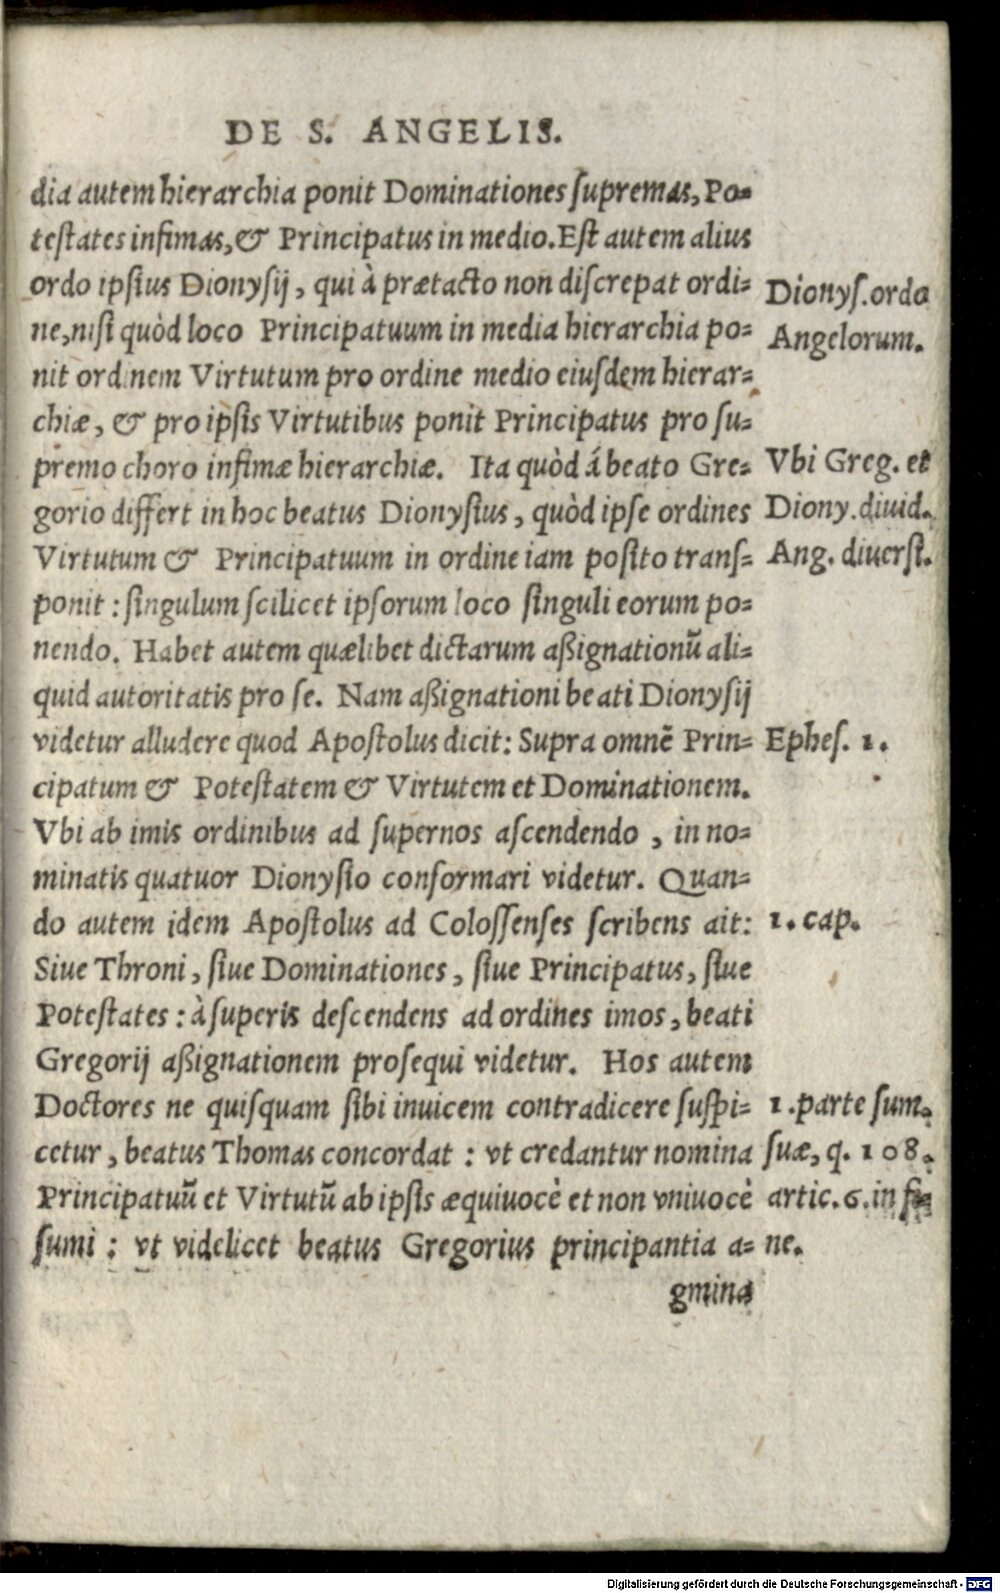 DE S. ANGELIS.
dia autem hierarchia ponit Dominationes ſupremas, Po=
teſtates infimas, & Principatus in medio. Eſt autem alius
ordo ipſius Dionyſij, qui à prætacto non diſcrepat ordi=
ne, niſi quòd loco Principatuum in media hierarchia po=
nit ordinem Virtutum pro ordine medio eiuſdem hierar=
chiæ, & pro ipſis Virtutibus ponit Principatus pro ſu=
premo choro infimæ hierarchiæ. Ita quòd á beato Gre=
gorio differt in hoc beatus Dionyſius, quòd ipſe ordines
Virtutum & Principatuum in ordine iam poſito tranſ=
ponit : ſingulum ſcilicet ipſorum loco ſinguli eorum po=
nendo. Habet autem quælibet dictarum aßignationū ali=
quid autoritatis pro ſe. Nam aßignationi beati Dionyſij
videtur alludere quod Apoſtolus dicit: Supra omnē Prin=
cipatum & Poteſtatem & Virtutem et Dominationem.
Vbi ab imis ordinibus ad ſupernos aſcendendo , in no=
minatis quatuor Dionyſio conformari videtur. Quan=
do autem idem Apoſtolus ad Coloſſenſes ſcribens ait:
Siue Throni, ſiue Dominationes, ſiue Principatus, ſiue
Poteſtates : à ſuperis deſcendens ad ordines imos, beati
Gregorij aßignationem proſequi videtur. Hos autem
Doctores ne quiſquam ſibi inuicem contradicere ſuſpi=
cetur, beatus Thomas concordat : vt credantur nomina
Principatuū et Virtutū ab ipſis æquiuocè et non vniuocè
ſumi : vt videlicet beatus Gregorius principantia a=
gmina
Dionyſ. ordo
Angelorum.
Vbi Greg. et
Diony. diuid.
Ang. diuerſi.
Epheſ. 1.
1. cap.
1. parte ſum.
ſuæ, q. 108.
artic. 6. in fi=
ne.
Digitalisierung gefördert durch die Deutsche Forschungsgemeinschaft - DFG